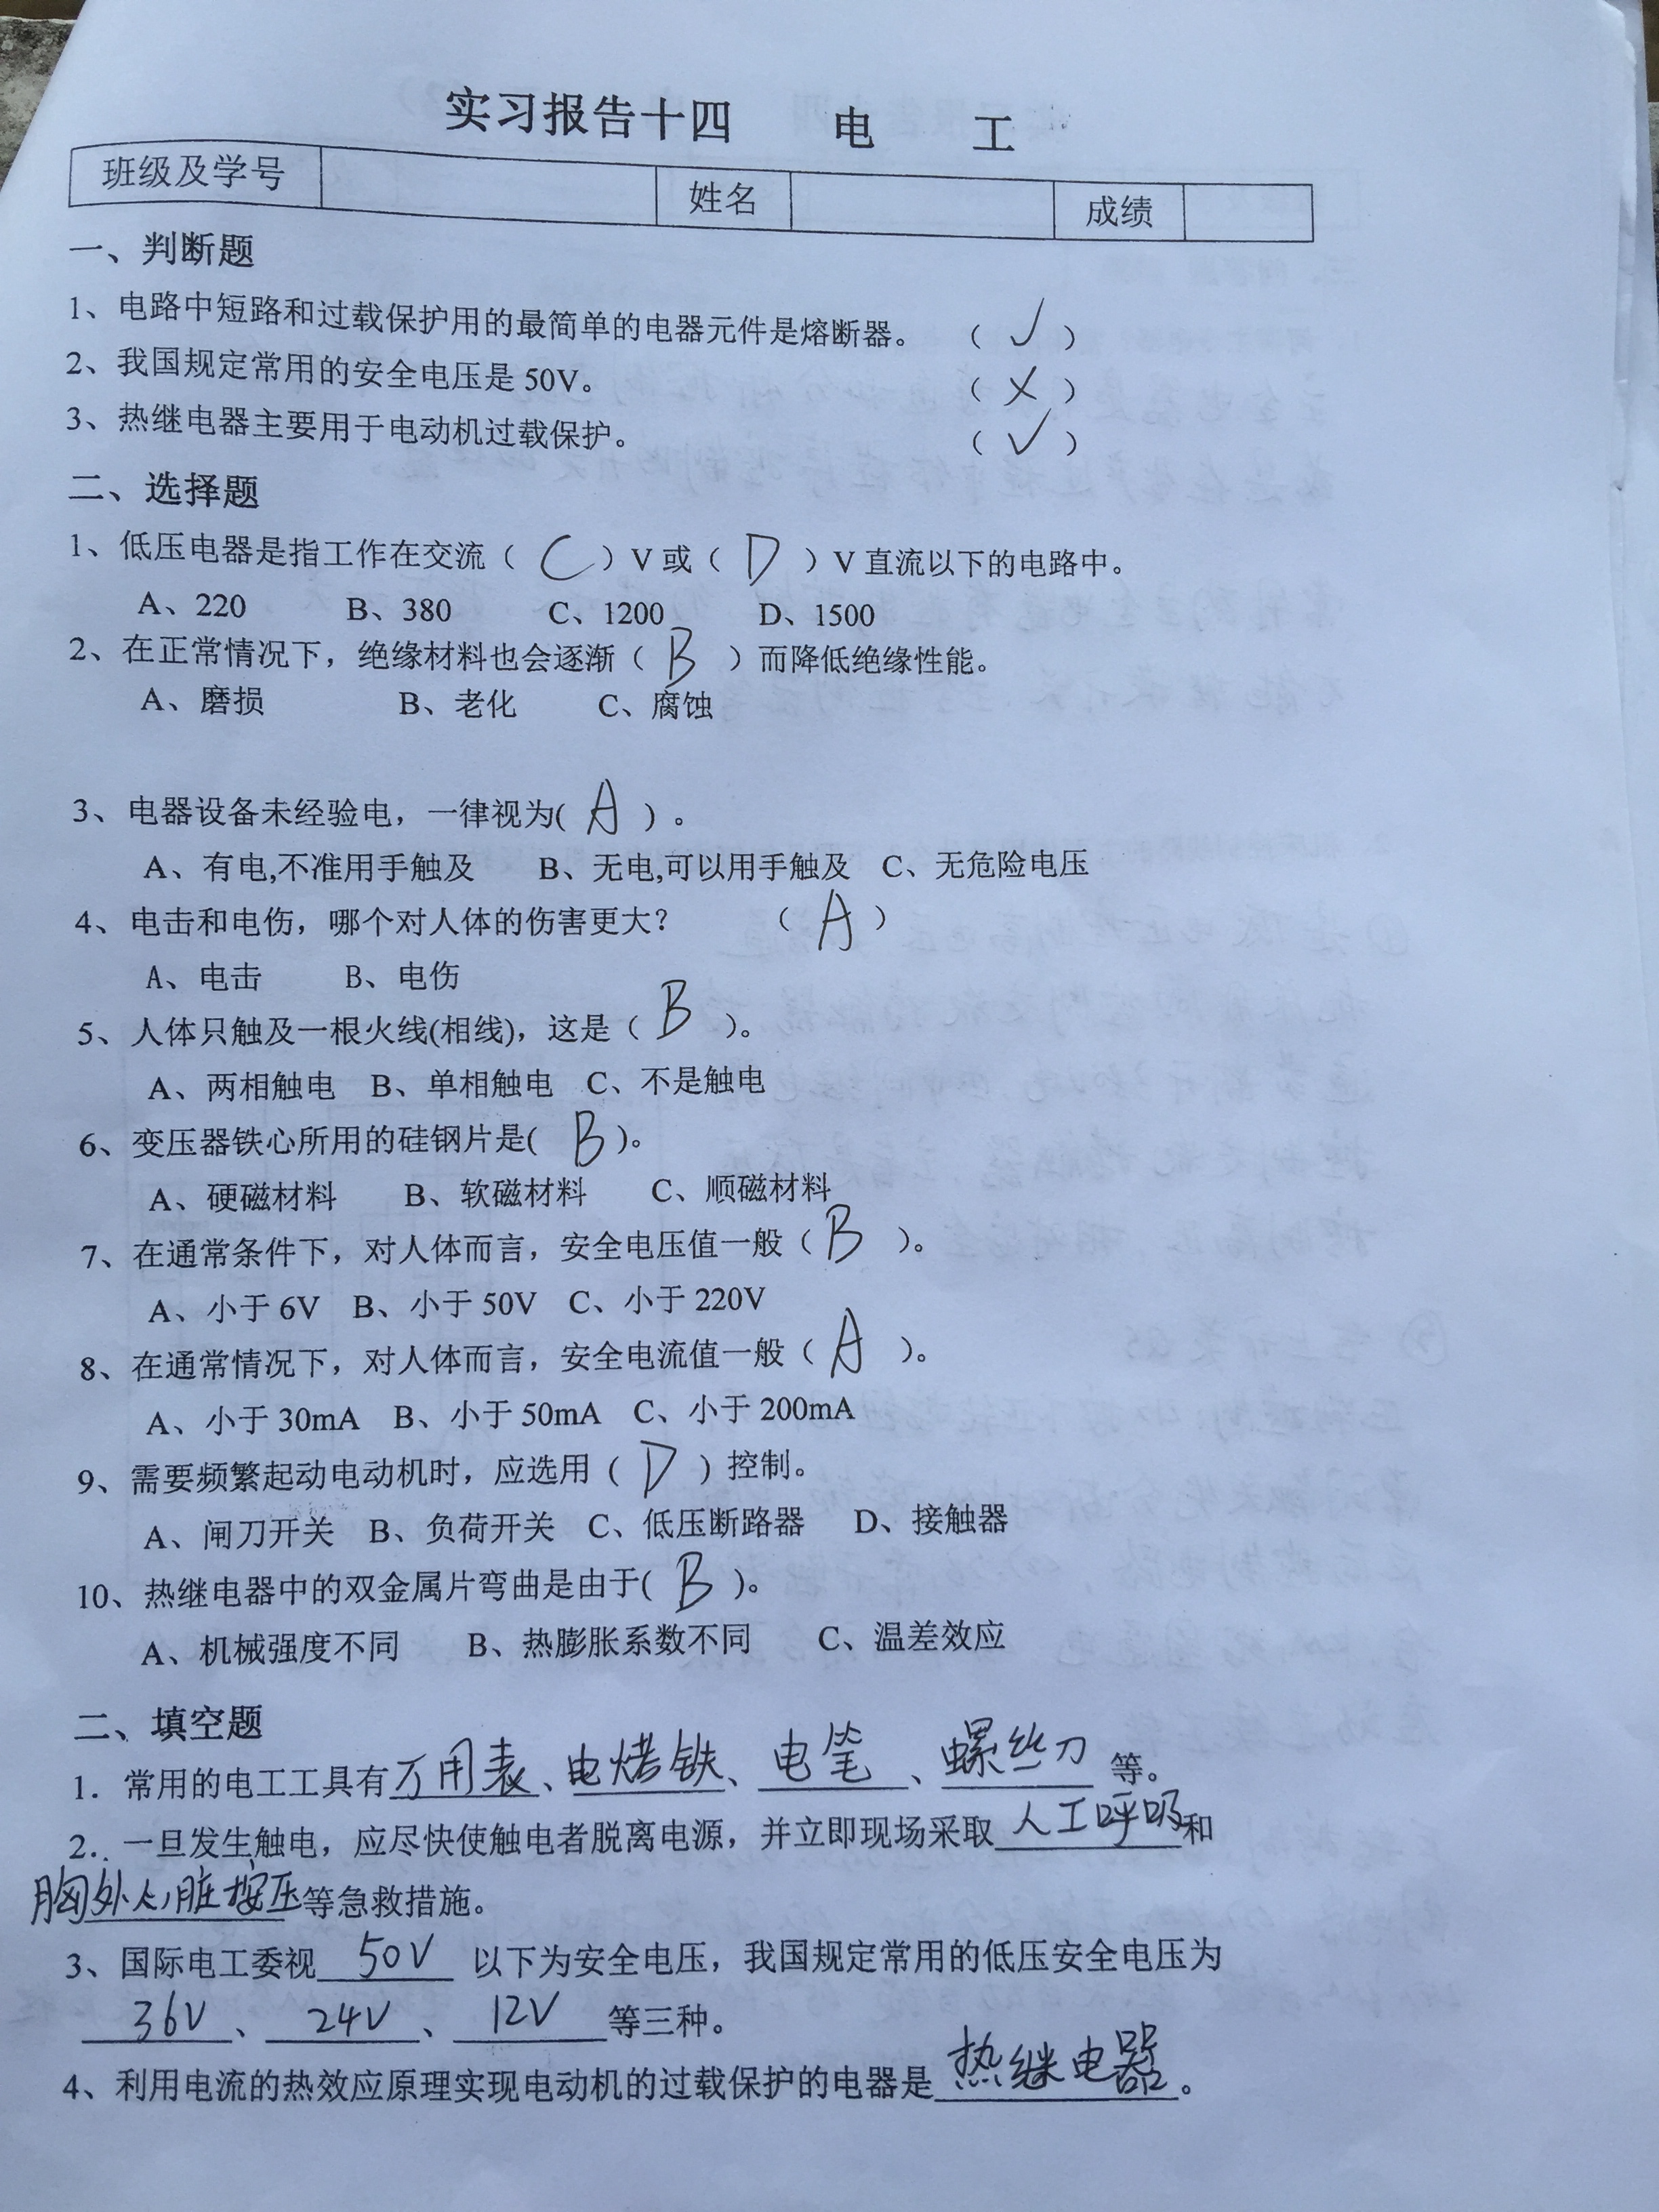 实习报告十四 电 工
班级及学号 姓名 成绩
一、判断题
1、电路中短路和过载保护用的最简单的电器元件是熔断器。 （ ✓ ）
2、我国规定常用的安全电压是 50V。 （ X ）
3、热继电器主要用于电动机过载保护。 （ ✓ ）
二、选择题
1、低压电器是指工作在交流（ C ）V 或（ D ）V 直流以下的电路中。
A、220 B、380 C、1200 D、1500
2、在正常情况下，绝缘材料也会逐渐（ B ）而降低绝缘性能。
A、磨损 B、老化 C、腐蚀
3、电器设备未经验电，一律视为( A ) 。
A、有电,不准用手触及 B、无电,可以用手触及 C、无危险电压
4、电击和电伤，哪个对人体的伤害更大？ （ A ）
A、电击 B、电伤
5、人体只触及一根火线(相线)，这是（ B ）。
A、两相触电 B、单相触电 C、不是触电
6、变压器铁心所用的硅钢片是( B )。
A、硬磁材料 B、软磁材料 C、顺磁材料
7、在通常条件下，对人体而言，安全电压值一般（ B ）。
A、小于 6V B、小于 50V C、小于 220V
8、在通常情况下，对人体而言，安全电流值一般（ A ）。
A、小于 30mA B、小于 50mA C、小于 200mA
9、需要频繁起动电动机时，应选用（ D ）控制。
A、闸刀开关 B、负荷开关 C、低压断路器 D、接触器
10、热继电器中的双金属片弯曲是由于( B )。
A、机械强度不同 B、热膨胀系数不同 C、温差效应
二、填空题
1．常用的电工工具有万用表、电烤铁、电笔、螺丝刀 等。
2.．一旦发生触电，应尽快使触电者脱离电源，并立即现场采取人工呼吸和
胸外心脏按压等急救措施。
3、国际电工委视 50V 以下为安全电压，我国规定常用的低压安全电压为
36V、24V、12V等三种。
4、利用电流的热效应原理实现电动机的过载保护的电器是热继电器。